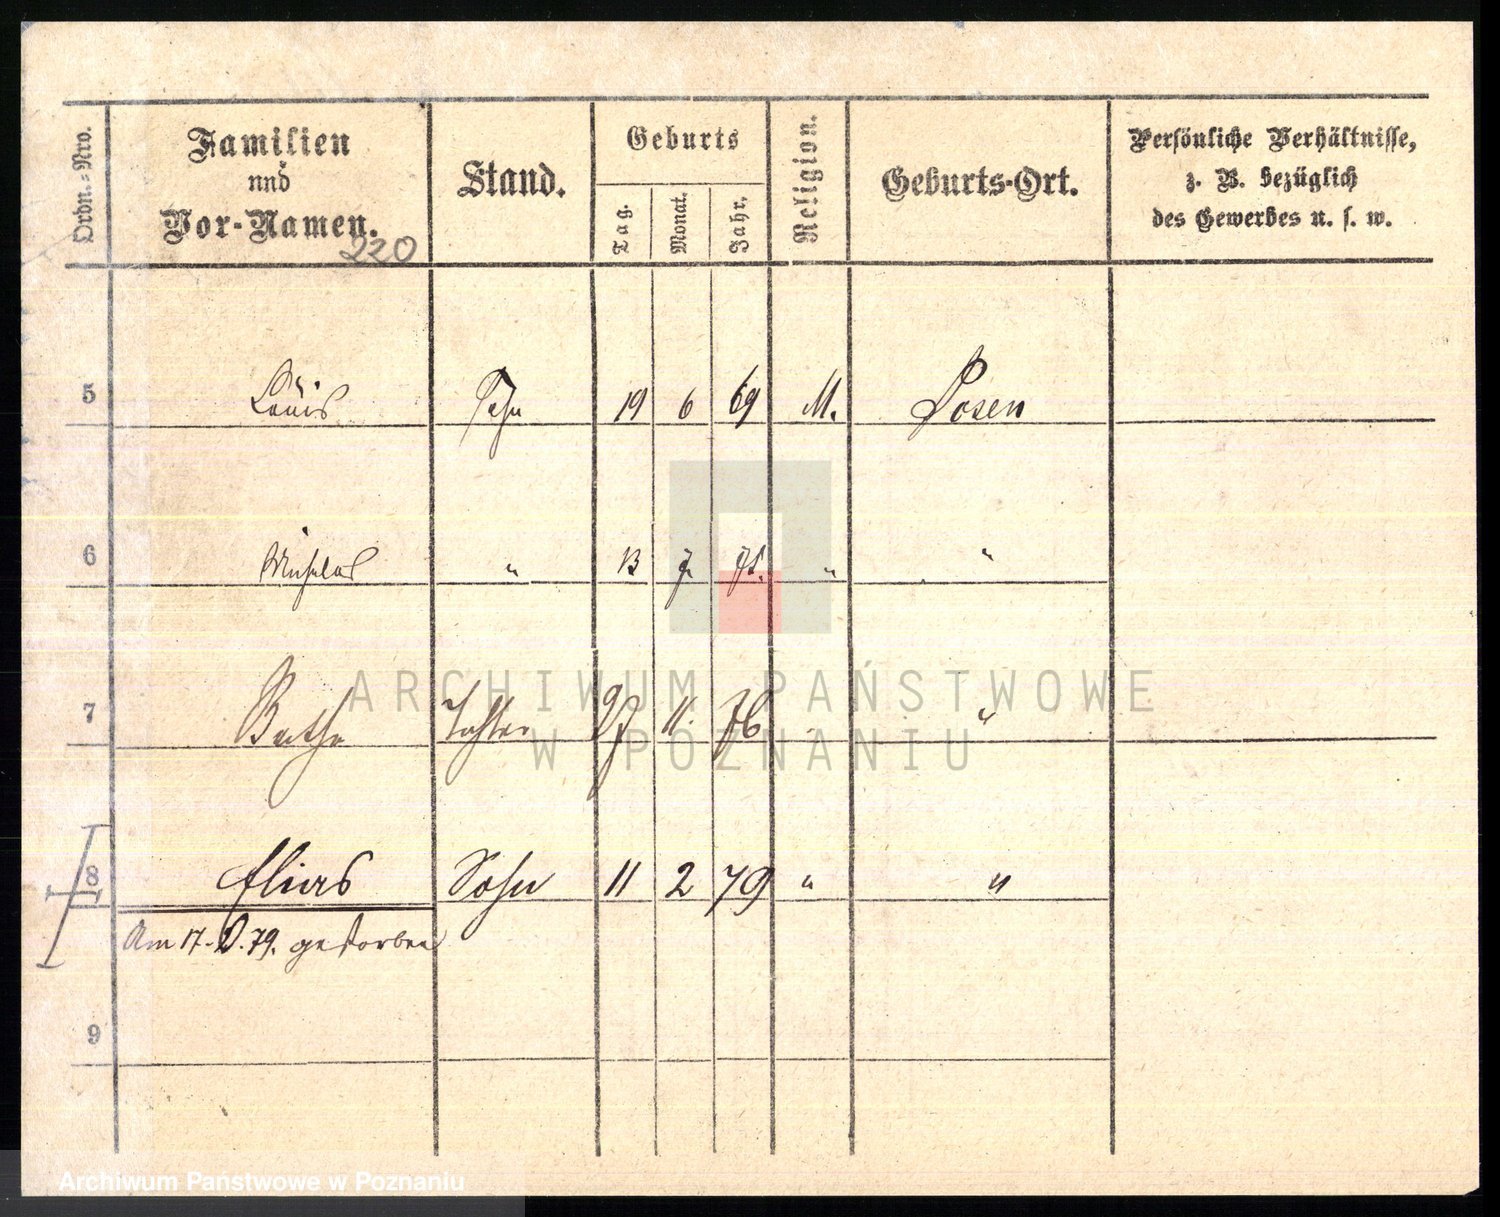 Ordn.-Nro. Familien und Vor-Namen. Stand. Geburts Tag. Monat. Jahr. Religion. Geburts-Ort. Persönliche Verhältnisse, z. B. bezüglich des Gewerbes u. s. w.
220
5 Louis Sohn 19 6 69 M. Posen
6 " 13 7. 71. " "
7 Tochter 27 11. 76 " "
8 Elias Sohn 11 2 79 " "
Am 17. 2. 79. gestorben
9
ARCHIWUM PAŃSTWOWE
W POZNANIU
Archiwum Państwowe w Poznaniu